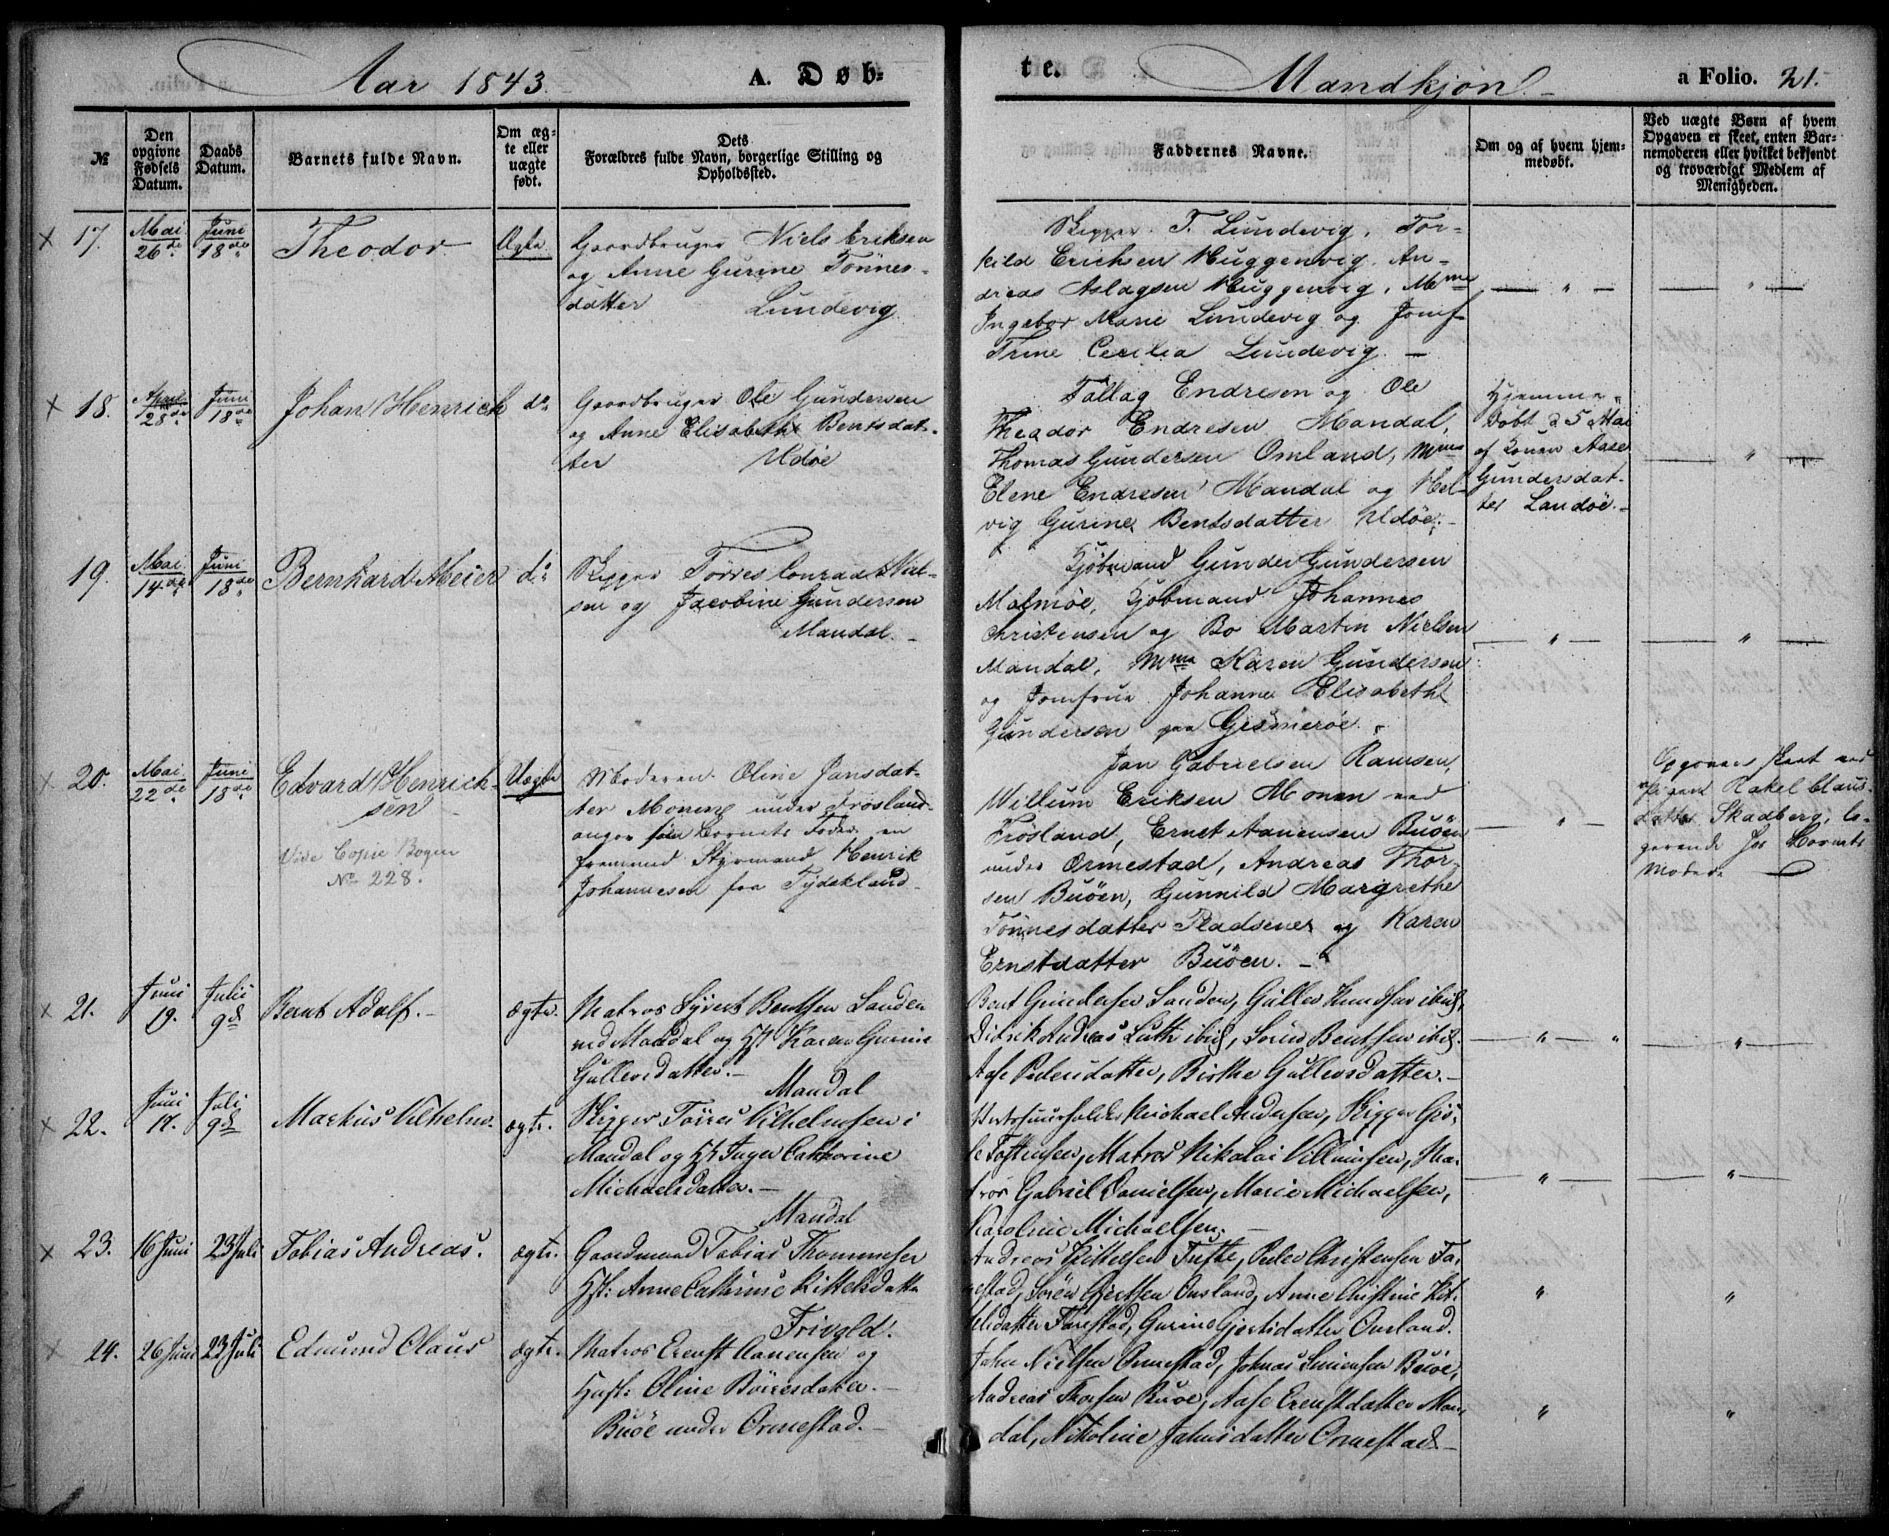 Aar 1843. A. Døb-
te. Mandkjøn. a Folio. 21.
№
Den opgivne Fødsels Datum.
Daabs Datum.
Barnets fulde Navn.
Om ægte eller uægte født.
Dets
Forældres fulde Navn, borgerlige Stilling og
Opholdssted.
Faddernes Navne.
Om og af hvem hjem-
medøbt.
Ved uægte Børn af hvem
Opgaven er skeet, enten Bar-
nemoderen eller hvilket bekjendt
og troværdigt Medlem af
Menigheden.
17. Mai 26de Juni 18de Theodor Ægte
Gaardbruger Niels Eriksen
og Anne Gurine Tönnes-
datter Lundevig
Skipper T. Lundevig, Tor-
kild Erichsen Huggenvig, An-
dreas Aslagsen Huggenvig, Mme
Ingebor Marie Lundevig og Jomf
Trine Cecilia Lundevig. —
— " —
— " —
18. April 28de Juni 18de Johan Henrich do
Gaardbruger Ole Gundersen
og Anne Elisabeth Bentsdat-
ter Udöe
Tallag Endresen og Ole
Theodor Endresen Mandal,
Thomas Gundersen Omland, Mme
Elene Endresen Mandal og Hel-
vig Gurine Bentsdatter Udöe. -
Hjemme-
döbt d 5 Mai
af Konen Aase
Gundersdat-
ter Landöe. -
— " —
19. Mai 14de Juni 18de Bernhard Meier do
Skipper Törres Conrad Niel-
sen og Jacobine Gundersen
Mandal. -
Kjöbmand Gunder Gundersen
Malmöe, Kjöbmand Johannes
Christensen og Bo Martin Nielsen
Mandal, Mme Karen Gundersen
og Jomfrue Johanne Elisabeth
Gundersen paa Gismeröe.
— " —
— " —
20. Mai 22de Juni 18de Edvard Henrich-
sen Uægte
Vide Copie Bogen
No 228.
Moderen Oline Jansdat-
ter Monen under Frösland
angav som Barnets Fader en
fremmed Styrmand Henrik
Johannesen fra Tydskland.
Jan Gabrielsen Ramsen,
Willum Eriksen Monen ved
Frösland, Ernst Aanensen Buöen
under Ormestad, Andreas Thor-
sen Buöen, Gunnild Margrethe
Tönnesdatter Pladsenes og Karen
Ernstdatter Buöen. -
— " —
Opgaven skeet ved
Pigen Rakel Claus-
datter Skadberg, lo-
gerende hos Barnets
Moder —
21. Juni 19. Julii 9d Bernt Adolf. - ægte.
Matros Syvert Bentsen Sanden
ved Mandal og H: Karen Gurine
Gullersdatter. -
Bent Gundersen Sanden, Guller Knudsen ibid,
Didrik Andreas Luth ibid, Sören Bentsen ibid.
Aase Pedersdatter, Birthe Gullersdatter. -
— " — "
— " —
Mandal
22. Juni 17. Juli 9d Markus Vilhelm. ægte.
Skipper Törres Vilhelmsen i
Mandal og H: Inger Cathrine
Michaelsdatter. -
Vertshuusholder Michael Andersen, Skipper Gis-
le Tostensen, Matros Nikolai Villumsen, Ma-
tros Gabriel Danielsen, Marie Michaelsen,
Karoline Michaelsen. -
— " —
— " —
Mandal
23. 16 Juni 23 Juli Tobias Andreas. ægte.
Gaardmand Tobias Thommesen
Hst: Anne Cathrine Kittelsdatter
Frivold.
Andreas Kittelsen Tufte, Peder Christensen Fa-
restad, Sören Gjertsen Omland, Anne Christine Kit-
telsdatter Farestad, Gurine Gjertsdatter Omland.
"
"
24. 26 Juni 23 Juli Edmund Claus ægte.
Matros Ernst Aanensen og
Hust: Oline Börresdatter. -
Buöe under Ormestad. -
Jahn Nielsen Ormestad, Johnas Simensen Buöe,
Andreas Thorsen Buöe, Aase Ernstdatter Man-
dal, Nikoline Jahnsdatter Ormestad. -
"
"